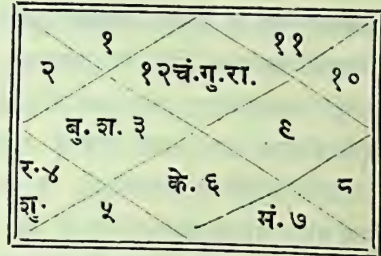 १ ११
२ १२चं.गु.रा. १०
बु. श. ३ ९
र.४ के. ६ ८
शु. ५ मं. ७